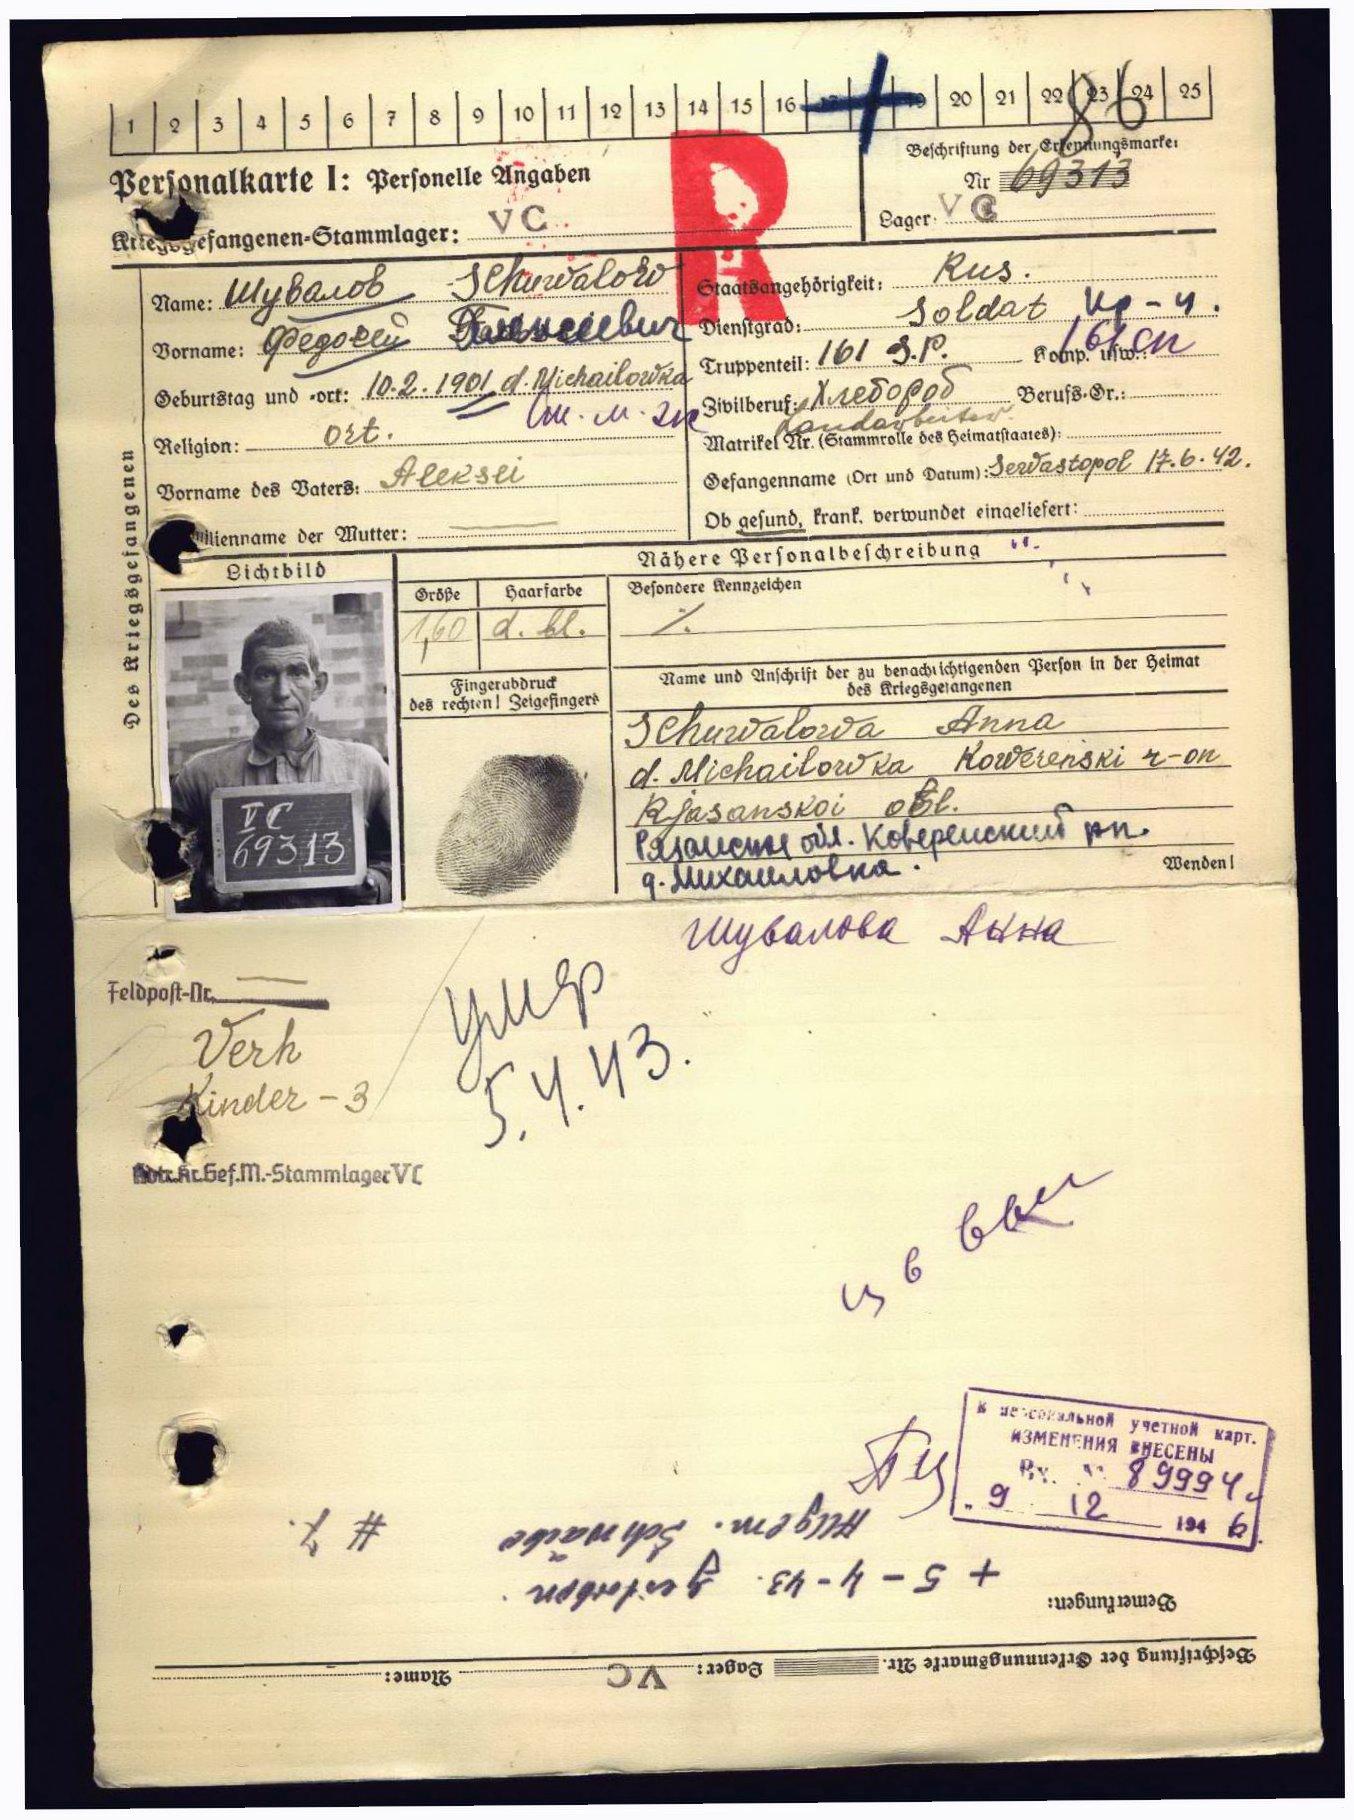 1 2 3 4 5 6 7 8 9 10 11 12 13 14 15 16 17 19 20 21 22 23 24 25
86
Personalkarte I: Personelle Angaben
Beschriftung der Erkennungsmarke:
Nr 69313
Kriegsgefangenen-Stammlager: V C
Lager: V C
R
Des Kriegsgefangenen
Name: Шувалов Schuwalow
Vorname: Федосий Алексеевич
Geburtstag und -ort: 10.2.1901 d. Michailowka
Religion: ort.
Vorname des Vaters: Aleksei
Familienname der Mutter:
Staatsangehörigkeit: Rus.
Dienstgrad: Soldat кр-ц.
Truppenteil: 161 S.P. Komp. usw.: 161 сп
Zivilberuf: Хлебороб Berufs-Gr.:
Landarbeiter
Matrikel Nr. (Stammrolle des Heimatstaates):
Gefangennahme (Ort und Datum): Sewastopol 17.6.42.
Ob gesund, krank, verwundet eingeliefert:
Lichtbild
Nähere Personalbeschreibung
Größe Haarfarbe Besondere Kennzeichen
1,60 d. bl. ·/.
Fingerabdruck
des rechten! Zeigefingers
Name und Anschrift der zu benachrichtigenden Person in der Heimat
des Kriegsgefangenen
V C
69313
Schuwalowa Anna
d. Michailowka Kowerenski r-on
Rjasanskoi obl.
Рязанская обл. Коверенский рн.
д. Михайловка.
Wenden!
Шувалова Анна
Feldpost-Nr.
Verh
Kinder - 3
умер
5.4.43.
Kr.Gef.M.-Stammlager V C
К персональной учетной карт.
ИЗМЕНЕНИЯ ВНЕСЕНЫ
Вх. № 89994
" 9 12 1946
Beschriftung der Erkennungsmarke Nr. Lager: V C Name:
Bemerkungen:
+ 5-4-43. gestorben.
Allgem. Schwäche # 7.